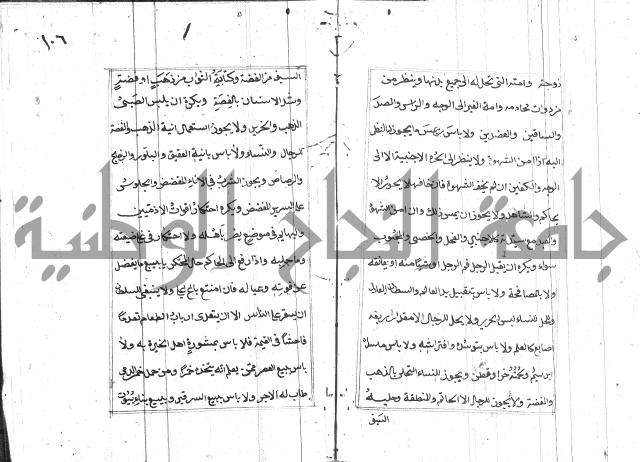 زوجته وامته التى تحل له الى جميع بدنها وينظر من
من ذوات محارمه وامة الغير الى الوجه والراس والصدر
والساقين والعضدين ولا باس بمس ما يجوز النظر
اليه اذا امن الشهوة ولا ينظر الى الحرة الاجنبية الا الى
الوجه والكفين ان لم يخف الشهوة فان خاف لا يجوز الا
للحاكم والشاهد ولا يجوز ان يمس ذلك وان امن الشهوة
والعبد مع سيدته كالاجنبي والفحل والخصي والمجبوب
سواء ويكره ان يقبل الرجل فم الرجل او شيا منه او يعانقه
ولا باس بالمصافحة ولا باس بتقبيل يد العالم والسلطان العادل
ويحل للنساء لبس الحرير ولا يحل للرجال الا مقدار اربعة
اصابع كالعلم ولا باس بتوسده وافتراشه ولا باس بلبس ما سداه
ابريسم ولحمته خز او قطن ويجوز للنساء التحلي بالذهب
والفضة ولا يجوز للرجال الا الخاتم والمنطقة وحلية
السيف
١٠٦
السيف من الفضة وكتابة الثواب من ذهب او فضة
وشد الاسنان بالفضة ويكره ان يلبس الصبي
الذهب والحرير ولا يجوز استعمال انية الذهب والفضة
للرجال والنساء ولا باس بانية العقيق والبلور والزجاج
والرصاص ويجوز الشرب فى الاناء المفضض والجلوس
على السرير المفضض ويكره احتكار اقوات الادميين
والبهايم فى موضع يضر باهله ولا احتكار فى غلة ضيعته
وما جلبه واذا رفع الى الحاكم حال المحتكر يامره ببيع ما يفضل
عن قوته وعياله فان امتنع باع عليه ولا ينبغى للسلطان
ان يسعر على الناس الا ان يتعدى ارباب الطعام تعديا
فاحشا فى القيمة فلا باس بمشورة اهل الخبرة به ولا
باس ببيع العصير ممن يعلم انه يتخذه خمرا ومن حمل خمرا لذمى
طاب له الاجر ولا باس ببيع السرقين وببيع بناء بيوت
جامعة النجاح الوطنية